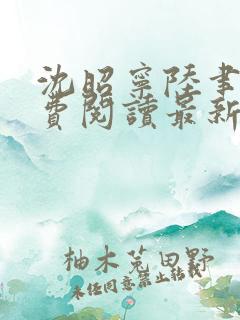 沈昭寧陸書
費閱讀最新
柚木菟田野
未任同意禁止转载